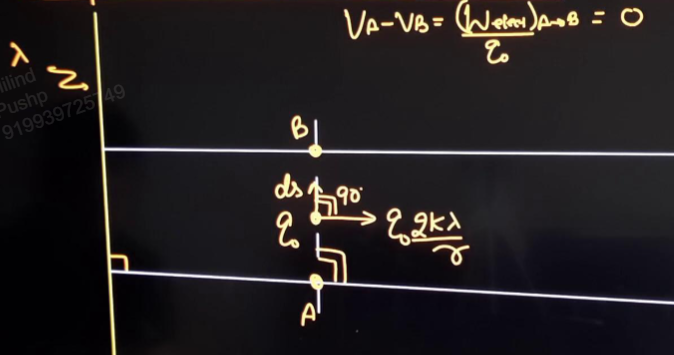 V_A - V_B = (W_elec)_A→B / q₀ = 0
λ
Milind
Pushp
919939725749
B
ds 90°
q₀ q₀ 2Kλ / r
A